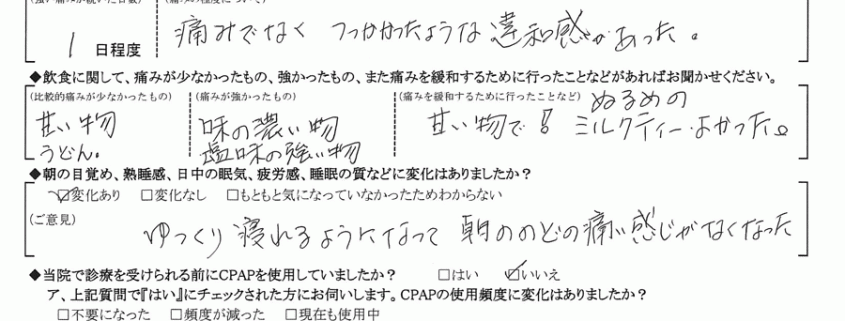 (強い痛みが続いた日数) (痛みの程度について)
1 日程度 痛みでなく つっかかったような違和感があった。
◆飲食に関して、痛みが少なかったもの、強かったもの、また痛みを緩和するために行ったことなどがあればお聞かせください。
(比較的痛みが少なかったもの) (痛みが強かったもの) (痛みを緩和するために行ったことなど) ぬるめの
甘い物 味の濃い物 甘い物で ミルクティーよかった。
うどん。 塩味の強い物
◆朝の目覚め、熟睡感、日中の眠気、疲労感、睡眠の質などに変化はありましたか?
☑変化あり □変化なし □もともと気になっていなかったためわからない
(ご意見) ゆっくり寝れるようになって 朝ののどの痛い感じがなくなった
◆当院で診療を受けられる前にCPAPを使用していましたか? □はい ☑いいえ
ア、上記質問で『はい』にチェックされた方にお伺いします。CPAPの使用頻度に変化はありましたか?
□不要になった □頻度が減った □現在も使用中